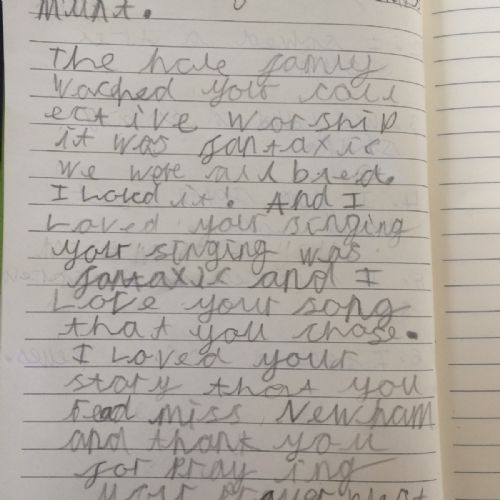 munt.
The hole famliy
wached your coll
ective worship
it was fantaxic
we were all bred.
I Loved it! And I
Loved your singing
your singing was
fantaxic and I
Love your song
that you chose.
I Loved your
story that you
read miss Newham
and thank you
for pray ing
your prayer